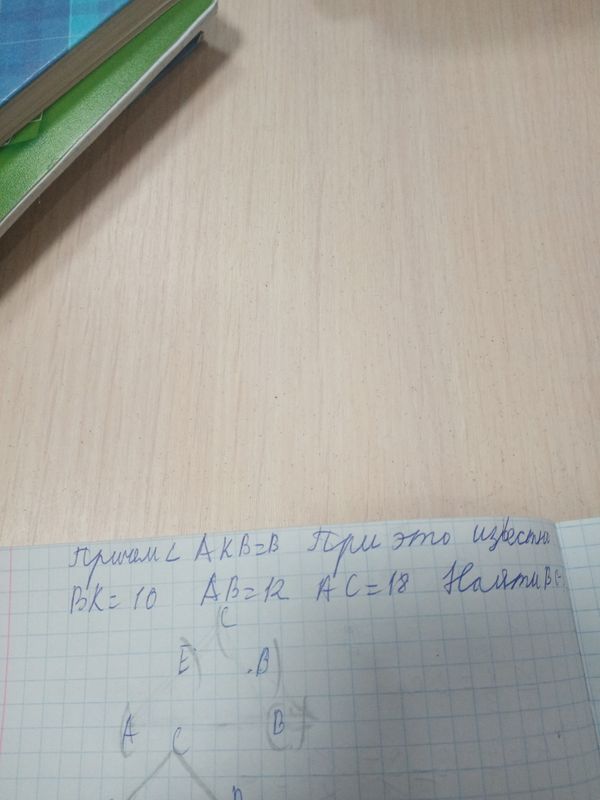 Причем ∠ AKB=B При это известна
BK=10 AB=12 AC=18 Найти BC
C
E B
A B
C